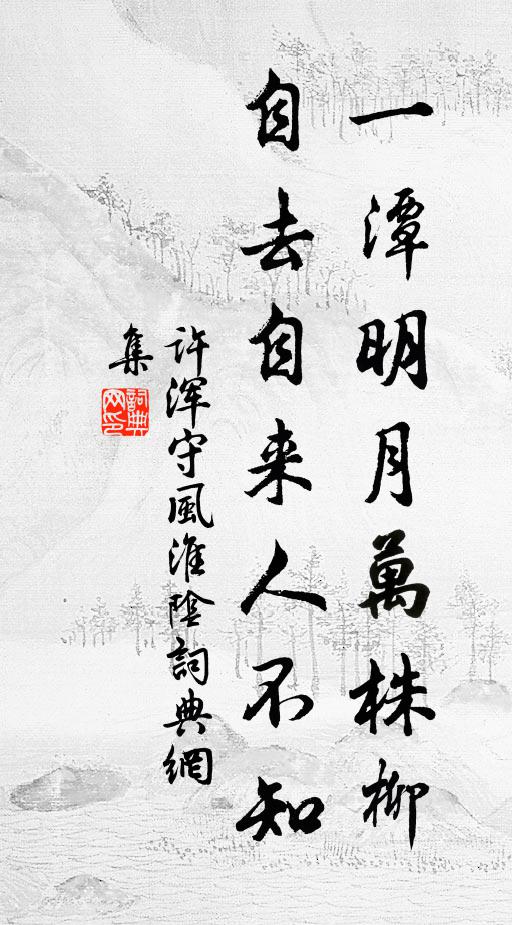 一潭明月萬株柳
自去自来人不知
许渾守風淮陰詞典網
集
詞典网印